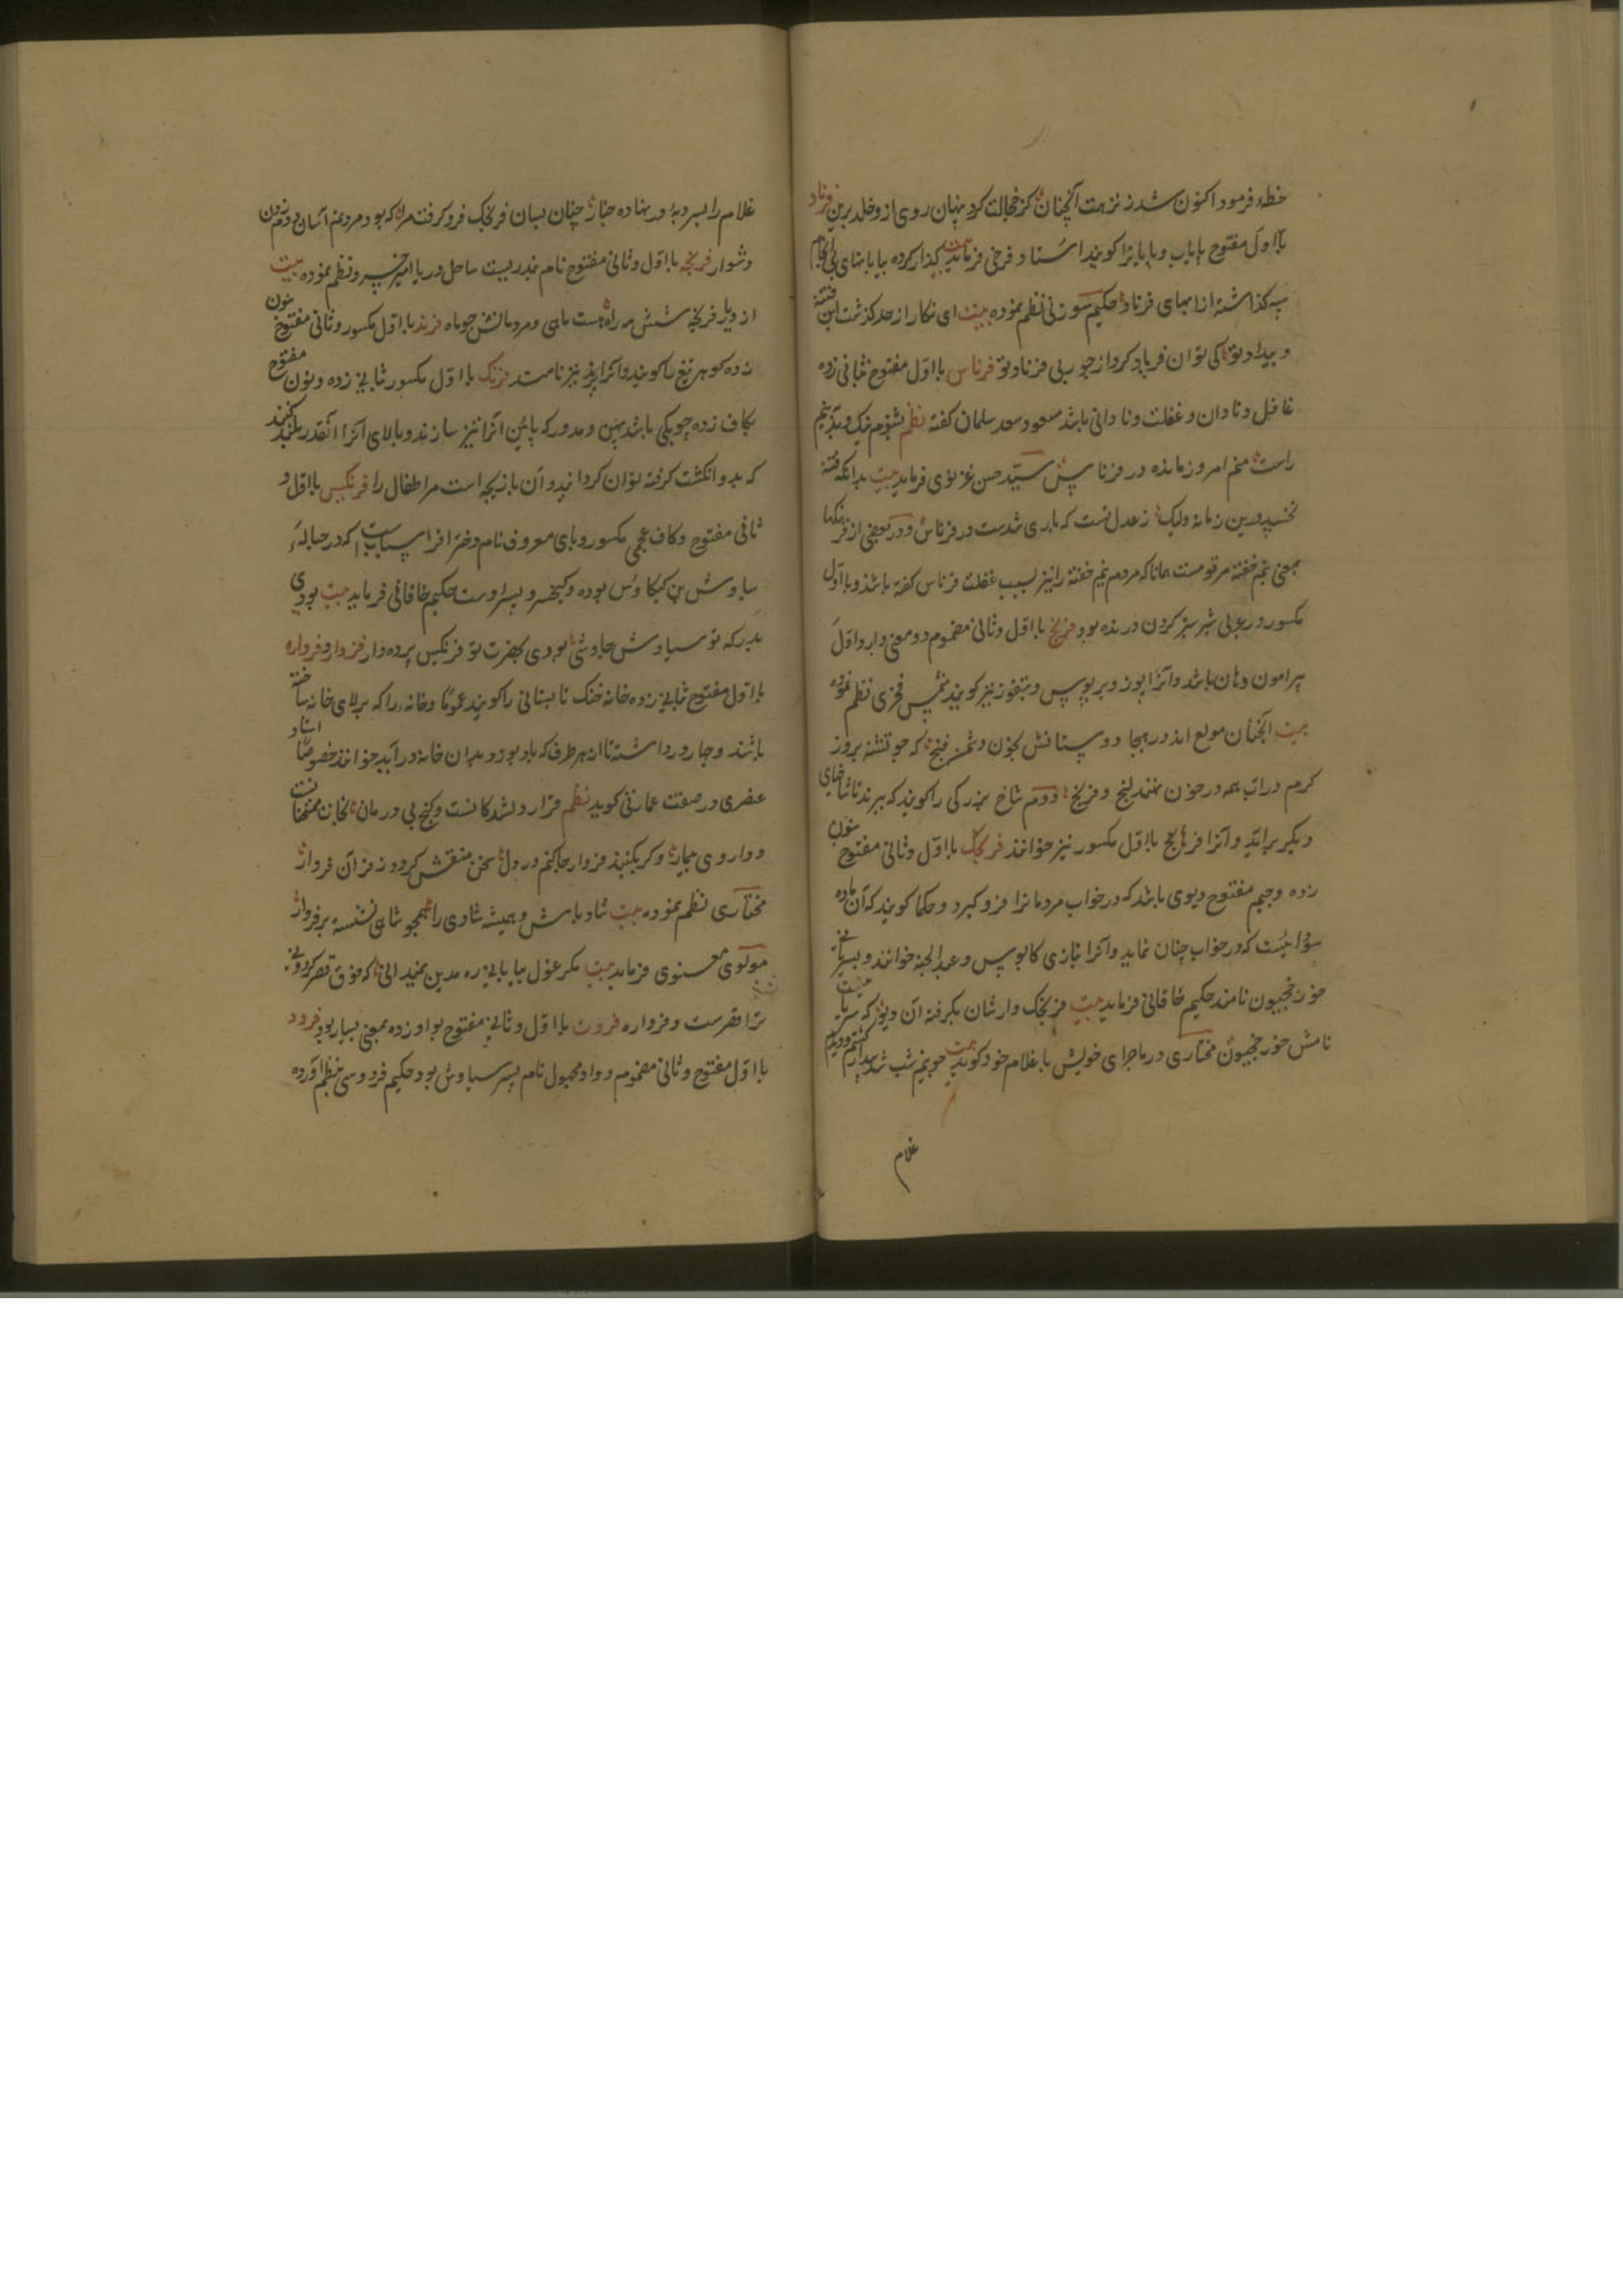 خطه فرمود اکنون شد ز نزهت آنچنان کز خجالت کرد پنهان روی ازو خلد برین فرناد
بااول مفتوح پایاب و پایانرا گویند استاد فرخی فرماید بیت گذار کرده بیابانهای بی انجام
سپه گذاشته از ابهای فرناد حکیم سوزنی نظم نموده بیت ای نگار از حد گذشت این فتنه
و بیداد تو کی توان فریاد کرد از جور بی فرناد تو فرناس بااول مفتوح بثانی زده
غافل و نادان و غفلت و نادانی باشد مسعود سعد سلمان گفته نظم نشنوم نیک و بد نبینم
راست منم امروز مانده در فرناس سید حسن غزنوی فرماید بیت بدانکه فتنه
نخسپد درین زمانه ولیک ز عدل تست که باری شدست در فرناس و در بعضی از فرهنگها
بمعنی نیم خفته مرقومست همانا که مردم نیم خفته را نیز بسبب غفلت فرناس گفته باشند و با اول
مکسور در عربی شیر سبز گردن درنده بود فرنج بااول و ثانی مضموم دو معنی دارد اول
پیرامون دهان باشد و آنرا پوز و بربوس و بتفوز نیز گویند شمس فخری نظم نموده
بیت آنچنان مولع اند در هیجا دوستانش بخون دشمن فنج که چو تشنه بروز
گرم در آب همه در خون نهند لنج و فرنج دوم شاخ بزرگی را گویند که ببرند تا شاخهای
دیگر برآید و آنرا فرهانج بااول مکسور نیز خوانند فرنجک بااول و ثانی مفتوح بنون
زده و جیم مفتوح دیوی باشد که در خواب مردمانرا فرو گیرد و حکما گویند که آن ماده
سوداییست که در خواب چنان نماید و آنرا بتازی کابوس و عبدالجنه خوانند و بسریانی
خورخجیون نامند حکیم خاقانی فرماید بیت فرنجک وارشان بگرفته آن دیو که سریانیست
نامش خورخجیون مختاری در ماجرای خویش با غلام خود گوید بیت چو نیم شب شد
غلام
غلام را بسر دیه در نهاده جناز چنان بسان فرنجک فرو گرفت مرا که بود مردنم آسان و دم زدن
دشوار فرنجه بااول و ثانی مفتوح نام بندریست ساحل دریا امیر خسرو نظم نموده بیت
از دیار فرنجه شش مه راه هست ماهی و مردمانش چو ماه فرند بااول مکسور و ثانی مفتوح بنون
زده گوهر تیغ را گویند و آنرا پرند نیز نامند فرنک بااول مکسور بثانی زده و نون مفتوح
بکاف زده چوبکی باشد پهن و مدور که پائین آنرا تیز سازند و بالای آنرا آنقدر بلند کنند
که بدو انگشت گرفته توان گردانید و آن بازیچه است مر اطفال را فرنگیس بااول و
ثانی مفتوح و کاف عجمی مکسور و یای معروف نام دختر افراسیاب است که در حباله
سیاوش بن کیکاوس بوده و کیخسرو پسر اوست حکیم خاقانی فرماید بیت بودی
بدرگه تو سیاوش چاوشی بودی بحضرت تو فرنگیس پرده دار فروار و فرواره
بااول مفتوح بثانی زده خانه خنک تابستانی را گویند عموما و خانه را که بر بالای خانه ساخته
باشند و چار در داشته تا از هر طرف که باد بوزد بدان خانه درآید خوانند خصوصا استاد
عنصری در صفت عمارتی گوید نظم
مختاری نظم نموده بیت شاد باش و همیشه شادی را همچو شاهی نشسته بر فروار
مولوی معنوی فرماید بیت مگر غول بیابانی ره مدین نمیدانی که فوق قصر گردونی
ترا قصرست و فرواره فروت بااول و ثانی مفتوح بواو زده بمعنی بسیار بود فرود
بااول مفتوح و ثانی مضموم و واو مجهول نام پسر سیاوش بود حکیم فردوسی بنظم آورده